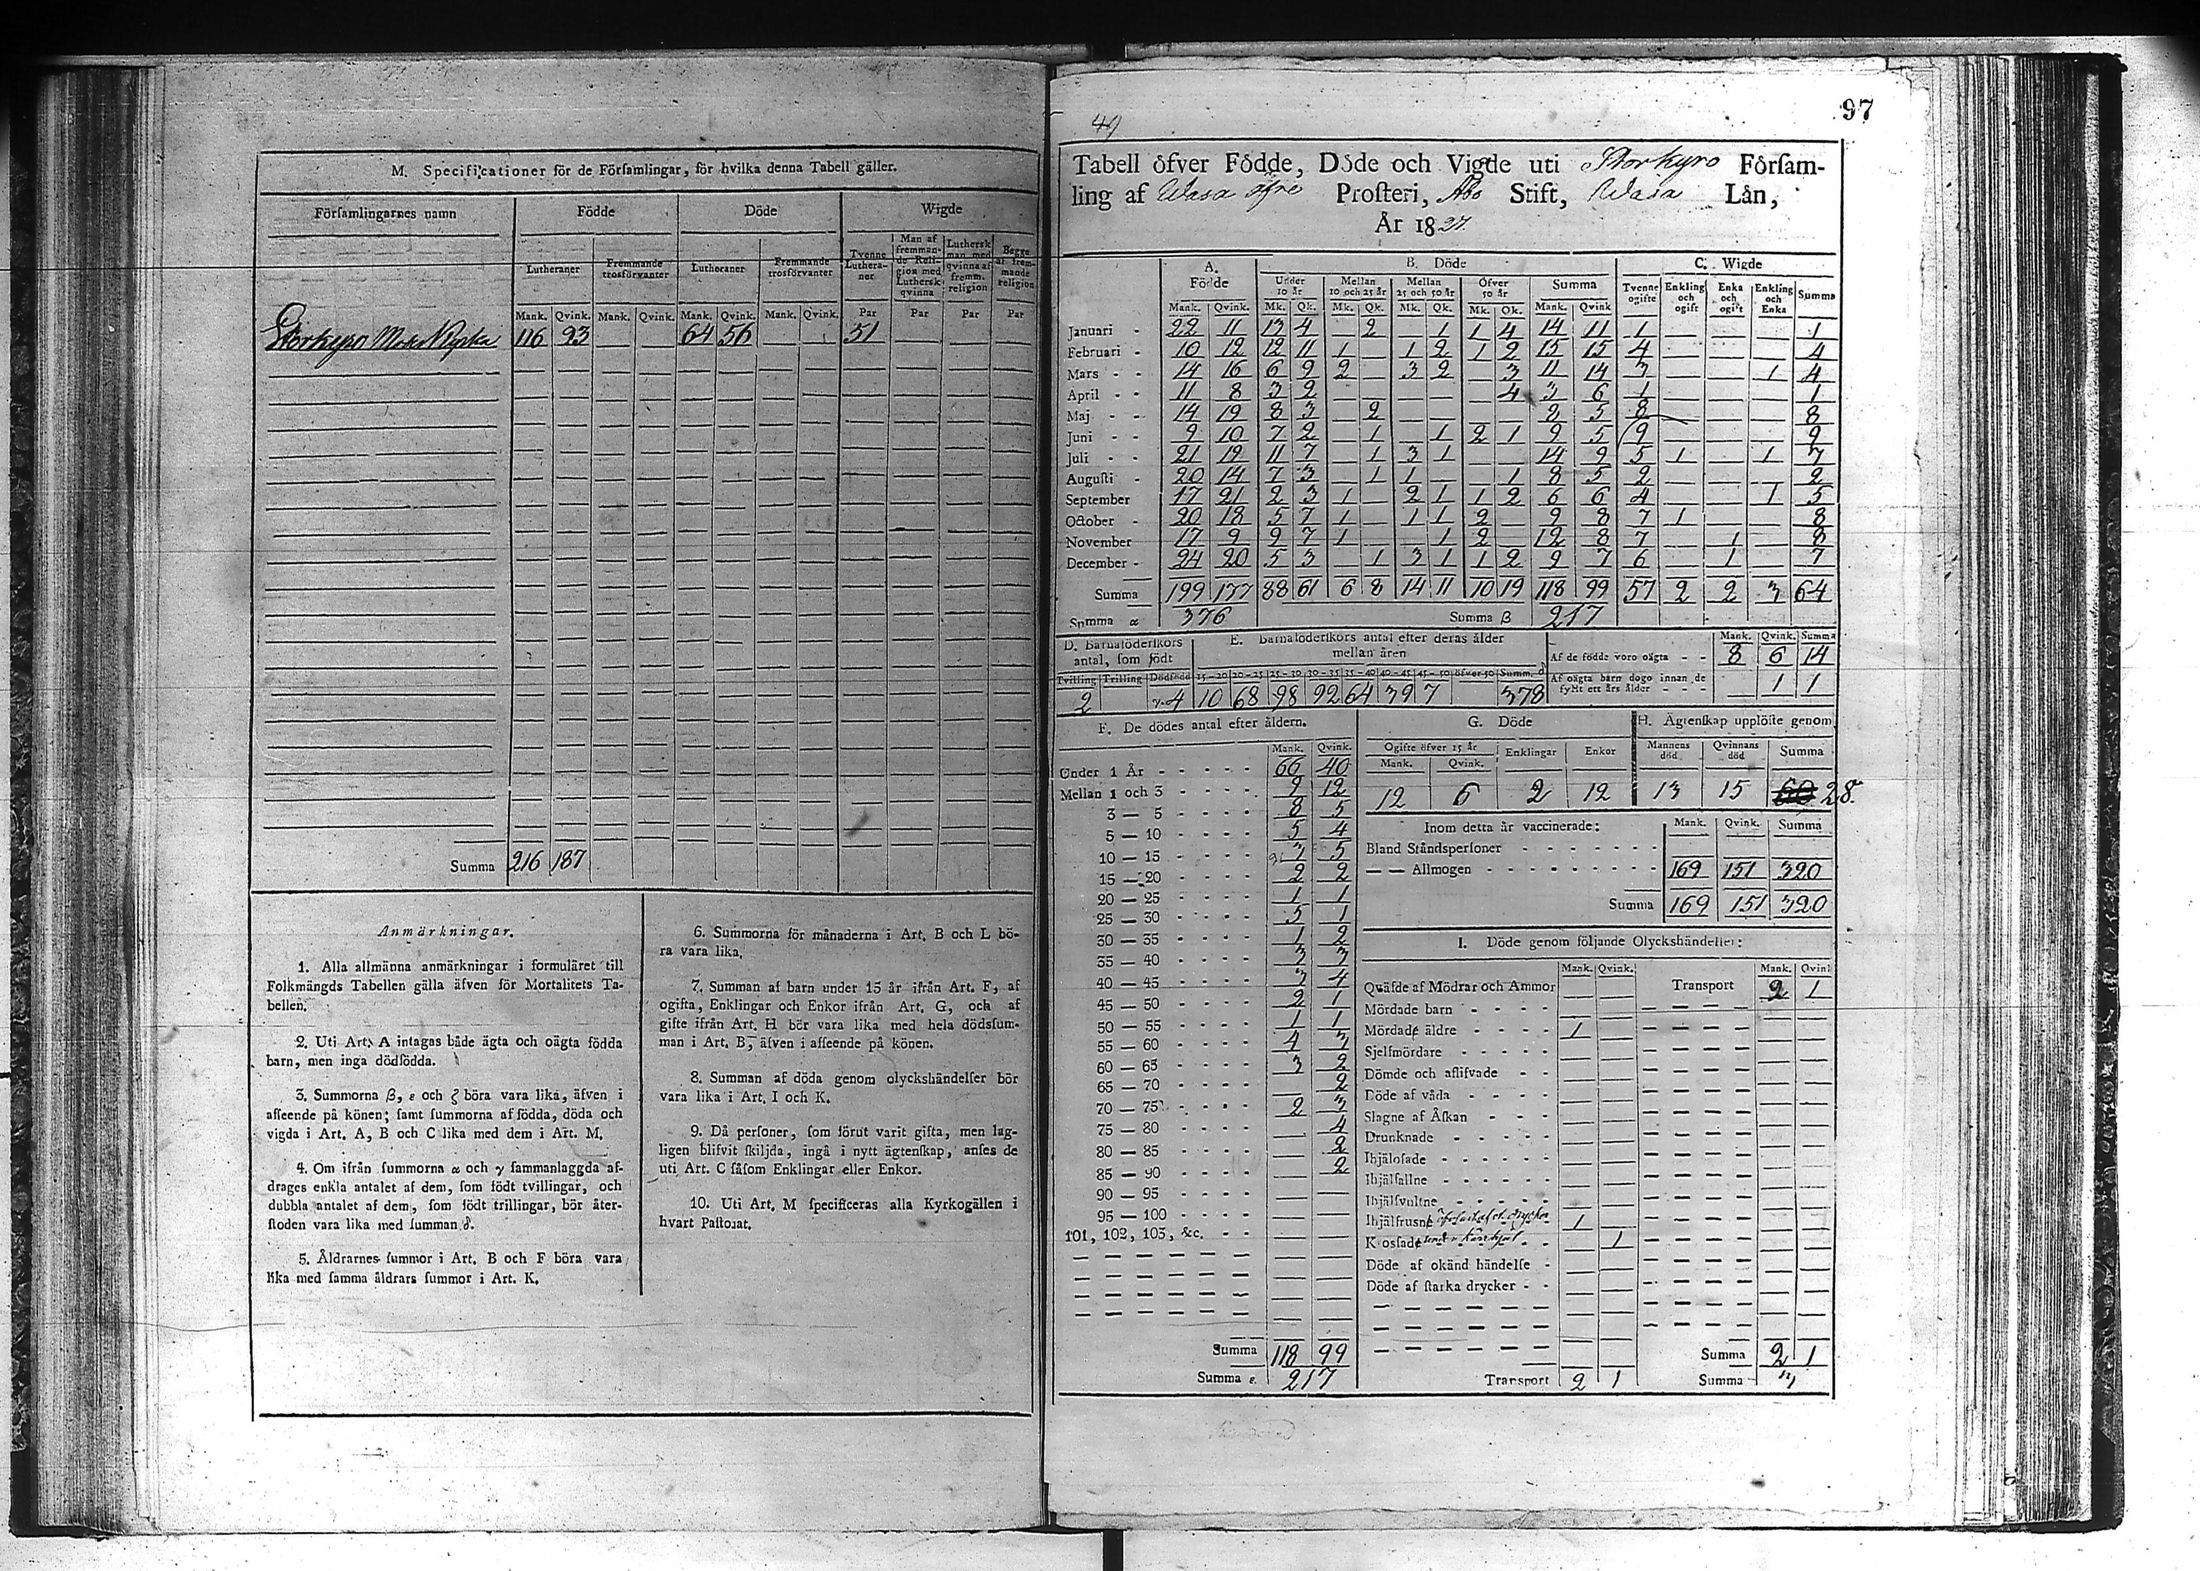 M. Specificationer för de Församlingar, för hvilka denna Tabell gäller.
Församlingarnes namn Födde Döde Wigde
Lutheraner Fremmande trosförvanter Lutheraner Fremmande trosförvanter Tvenne Lutheraner Man af fremmande Religion med Luthersk qvinna Luthersk man med qvinna af fremm. religion Begge af fremmande religion
Mank. Qvink. Mank. Qvink. Mank. Qvink. Mank. Qvink. Par Par Par Par
Storkyro Moder Kyrka 116 93 — — 64 56 — — 51 — — —
Summa 216 187
Anmärkningar.
1. Alla allmänna anmärkningar i formuläret till
Folkmängds Tabellen gälla äfven för Mortalitets Ta-
bellen.
2. Uti Art. A intagas både ägta och oägta födda
barn, men inga dödfödda.
3. Summorna β, ε och ζ böra vara lika, äfven i
afseende på könen; samt summorna af födda, döda och
vigda i Art. A, B och C lika med dem i Art. M.
4. Om ifrån summorna α och γ sammanlaggda af-
drages enkla antalet af dem, som födt tvillingar, och
dubbla antalet af dem, som födt trillingar, bör åter-
stoden vara lika med summan δ.
5. Åldrarnes summor i Art. B och F böra vara
lika med samma åldrars summor i Art. K.
6. Summorna för månaderna i Art. B och L bö-
ra vara lika.
7. Summan af barn under 15 år ifrån Art. F, af
ogifta, Enklingar och Enkor ifrån Art. G, och af
gifte ifrån Art. H bör vara lika med hela dödssum-
man i Art. B, äfven i afseende på könen.
8. Summan af döda genom olyckshändelser bör
vara lika i Art. I och K.
9. Då personer, som förut varit gifta, men lag-
ligen blifvit skiljda, ingå i nytt ägtenskap, anses de
uti Art. C såsom Enklingar eller Enkor.
10. Uti Art. M specificeras alla Kyrkogällen i
hvart Pastorat.
49
97
Tabell öfver Födde, Döde och Vigde uti Storkyro Församling
af Wasa öfre Prosteri, Åbo Stift, Wasa Län,
År 1827.
A. Födde B. Döde C. Wigde
Under 10 år Mellan 10 och 25 år Mellan 25 och 50 år Öfver 50 år Summa Tvenne ogifte Enkling och ogift Enka och ogift Enkling och Enka Summa
Mank. Qvink. Mk. Qk. Mk. Qk. Mk. Qk. Mk. Qk. Mank. Qvink
Januari - 22 11 13 4 2 1 1 4 14 11 1 — — — 1
Februari - 10 12 12 11 1 — 1 2 1 2 15 15 4 — — — 4
Mars - - 14 16 6 9 2 — 3 2 — 3 11 14 3 — — 1 4
April - - 11 8 3 2 — — — — — 4 3 6 1 — — — 1
Maj - - 14 19 8 3 — 2 — — — — 2 5 8 — — — 8
Juni - - 9 10 7 2 — 1 — 1 2 1 9 5 9 — — — 9
Juli - - 21 19 11 7 — 1 3 1 — — 14 9 5 1 — 1 7
Augusti - 20 14 7 3 — 1 1 — — 1 8 5 2 — — — 2
September 17 21 2 3 1 — 2 1 1 2 6 6 4 — — 1 5
October - 20 18 5 7 1 — 1 1 2 — 9 8 7 1 — — 8
November 17 9 9 7 1 — — 1 2 — 12 8 7 — 1 — 8
December - 24 20 5 3 — 1 3 1 1 2 9 7 6 — 1 — 7
Summa 199 177 88 61 6 8 14 11 10 19 118 99 57 2 2 3 64
Summa α 376 Summa β 217
D. Barnaföderskors antal, som födt
Tvilling Trilling Dödfödd
2 γ. 4
E. Barnaföderskors antal efter deras ålder mellan åren
15 - 20 20 - 25 25 - 30 30 - 35 35 - 40 40 - 45 45 - 50 öfver 50 Summ. δ
10 68 98 92 64 39 7 378
Mank. Qvink. Summa
Af de födde voro oägta - - 8 6 14
Af oägta barn dogo innan de fyllt ett års ålder - - - 1 1
F. De dödes antal efter åldern.
Mank. Qvink.
Under 1 År - - - - - 66 40
Mellan 1 och 3 - - - - 9 12
3 — 5 - - - - 8 5
5 — 10 - - - - 5 4
10 — 15 - - - - 3 5
15 — 20 - - - - 2 2
20 — 25 - - - - 1 1
25 — 30 - - - - 5 1
30 — 35 - - - - 1 2
35 — 40 - - - - 3 3
40 — 45 - - - - 3 4
45 — 50 - - - - 2 1
50 — 55 - - - - 1 1
55 — 60 - - - - 4 3
60 — 65 - - - - 3 2
65 — 70 - - - - 2
70 — 75 - - - - 2 3
75 — 80 - - - - — 4
80 — 85 - - - - — 2
85 — 90 - - - - — 2
90 — 95 - - - -
95 — 100 - - - -
101, 102, 103, &c. - -
Summa 118 99
Summa ε. 217
G. Döde
Ogifte öfver 15 år Enklingar Enkor
Mank. Qvink.
12 6 2 12
H. Ägtenskap upplöste genom
Mannens död Qvinnans död Summa
13 15 28.
Inom detta år vaccinerade: Mank. Qvink. Summa
Bland Ståndspersoner - - - - - - -
— — Allmogen - - - - - - - - 169 151 320
Summa 169 151 320
I. Döde genom följande Olyckshändelser:
Mank. Qvink. Mank. Qvink
Qväfde af Mödrar och Ammor — — Transport 2 1
Mördade barn - - - -
Mördade äldre - - - - 1
Sjelfmördare - - - - -
Dömde och aflifvade - -
Döde af våda - - - -
Slagne af Åskan - - -
Drunknade - - - - -
Ihjälosade - - - - -
Ihjälfallne - - - - -
Ihjälsvultne - - - - -
Ihjälfrusne 1
Krossade under 1
Döde af okänd händelse -
Döde af starka drycker - -
Summa 2 1
Transport 2 1 Summa 3